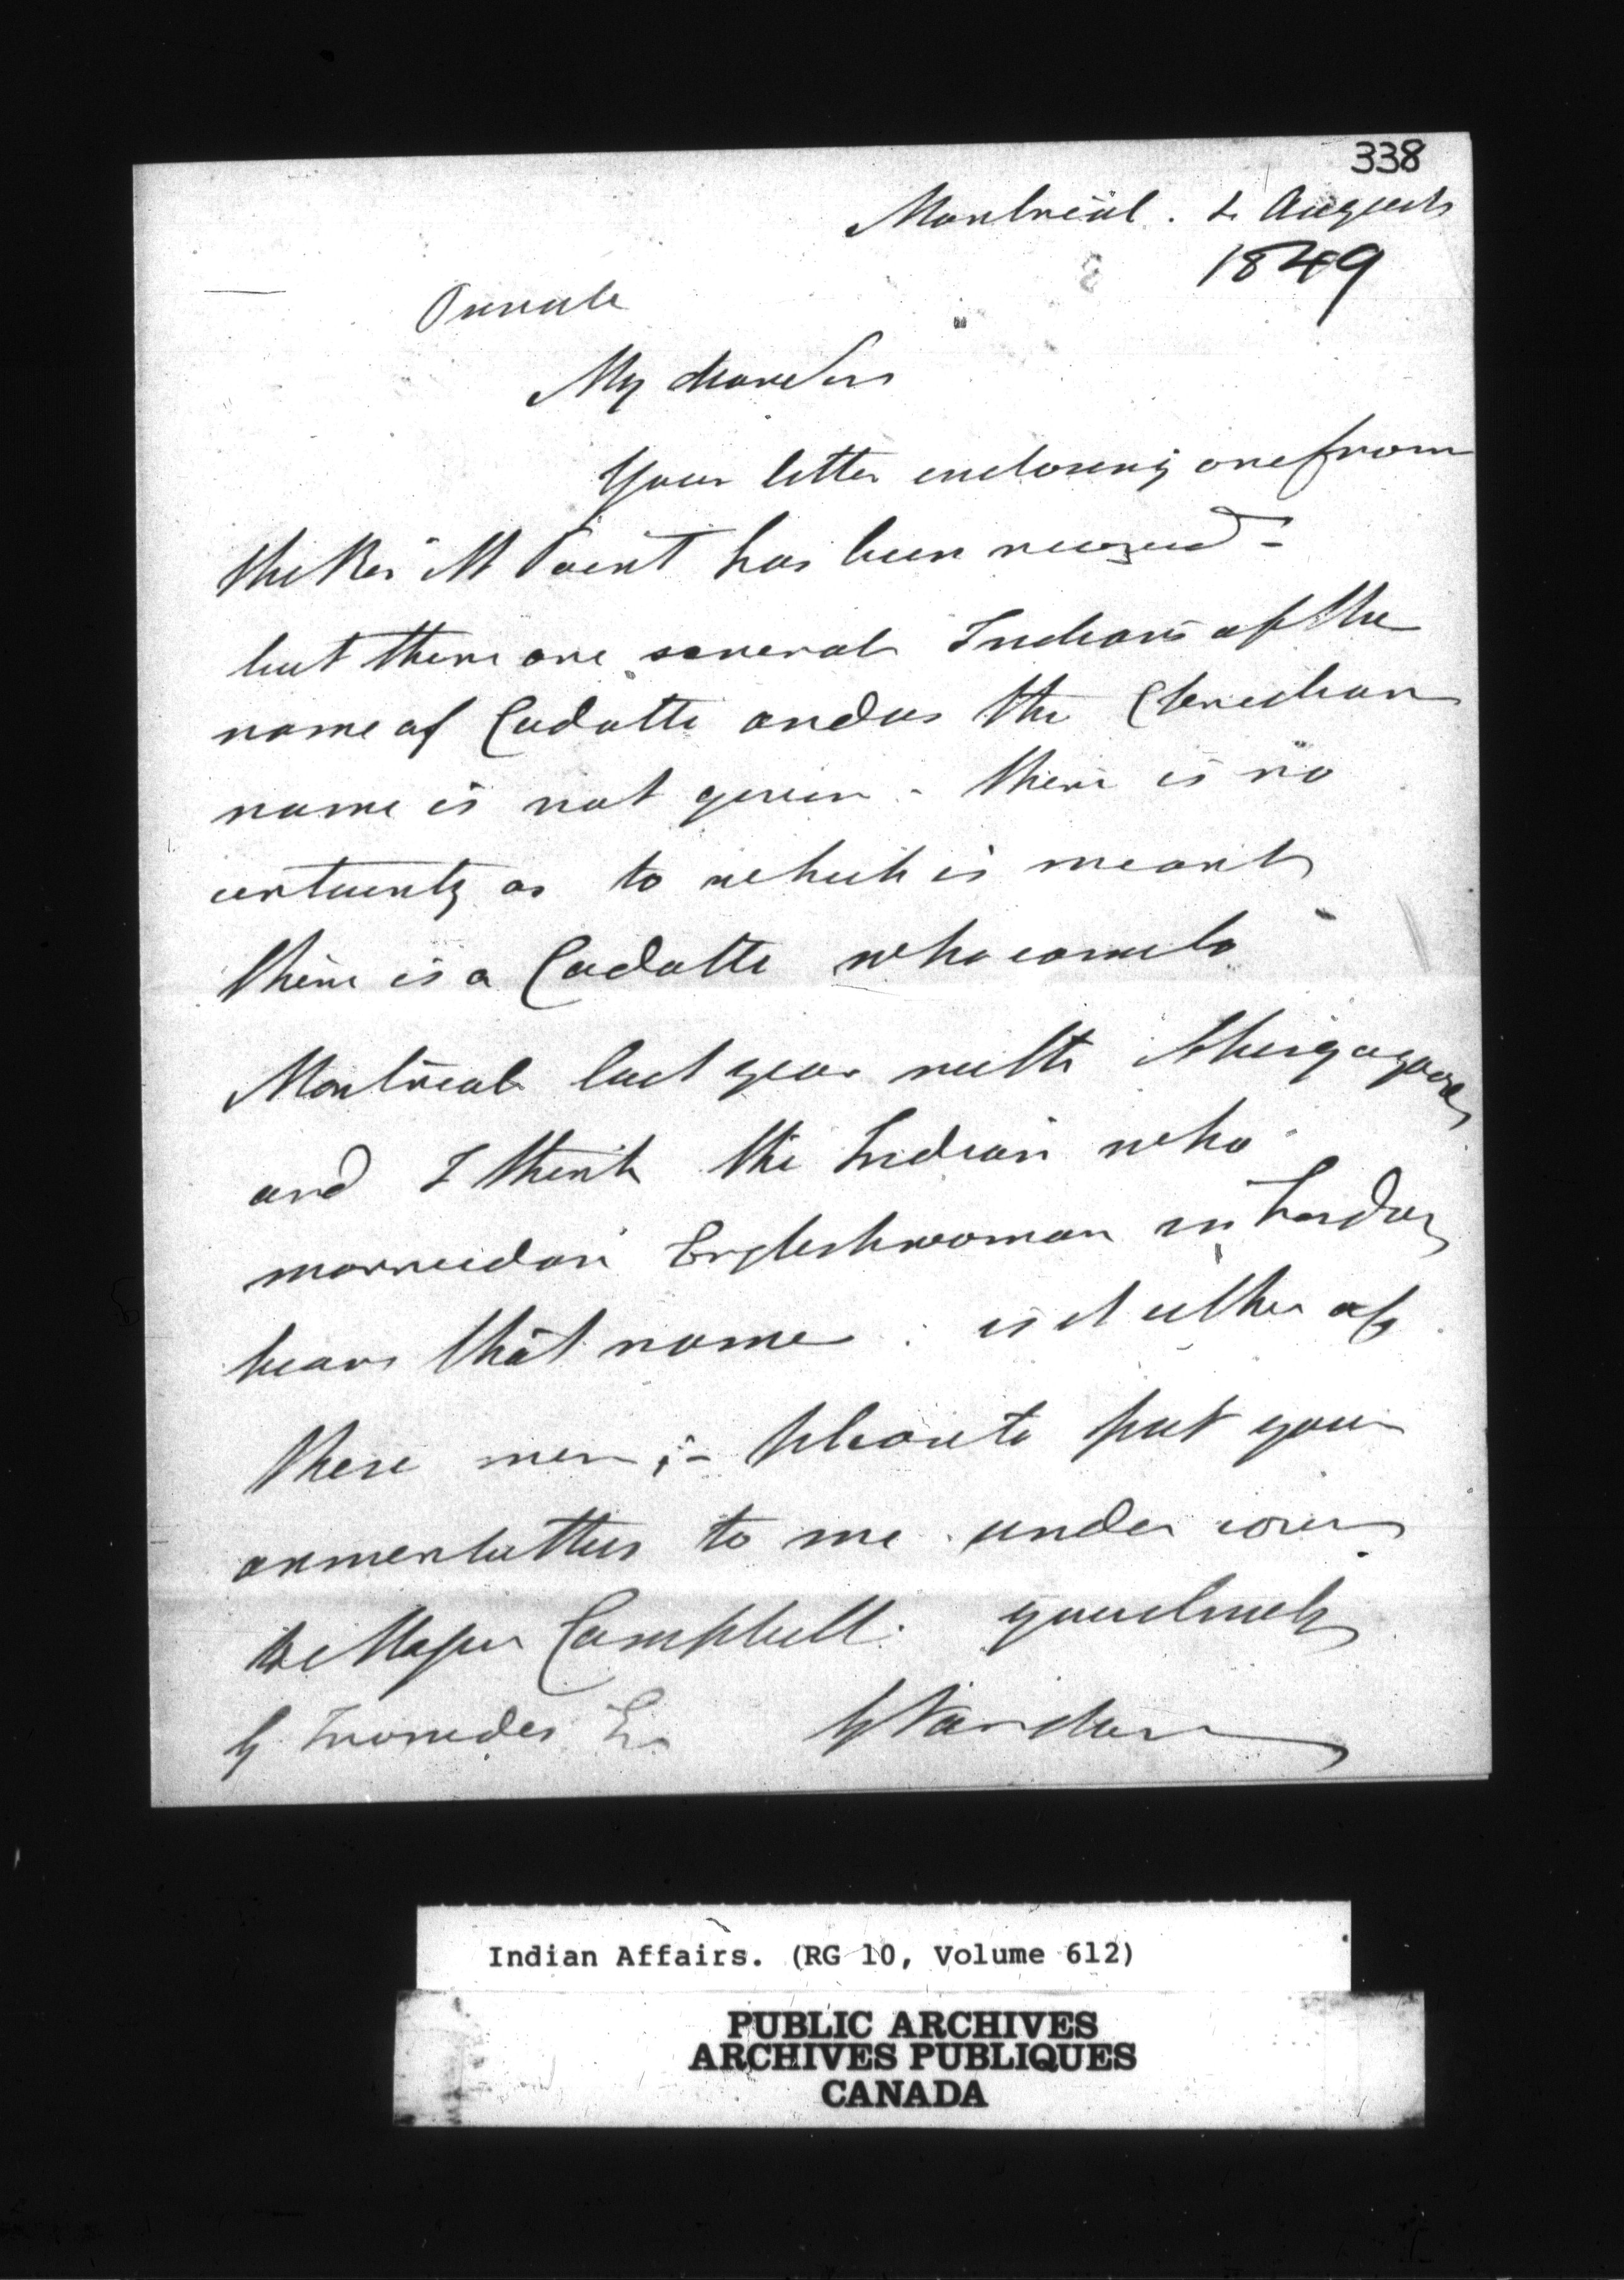 338
Montreal. 2 August
1849
Private
My dear Sir
Your letter enclosing one from
the Rev Mr Point has been received -
but there are several Indians of the
name of Cadotte and as the Christian
name is not given - there is no
certainty as to which is meant
there is a Cadotte who came to
Montreal last year with
and I think the Indian who
married an Englishwoman in London
bears that name. is it either of
these men; - please to put your
letters to me under cover
to Major Campbell. yours truly
G Ironside Esq Vardon
Indian Affairs. (RG 10, Volume 612)
PUBLIC ARCHIVES
ARCHIVES PUBLIQUES
CANADA